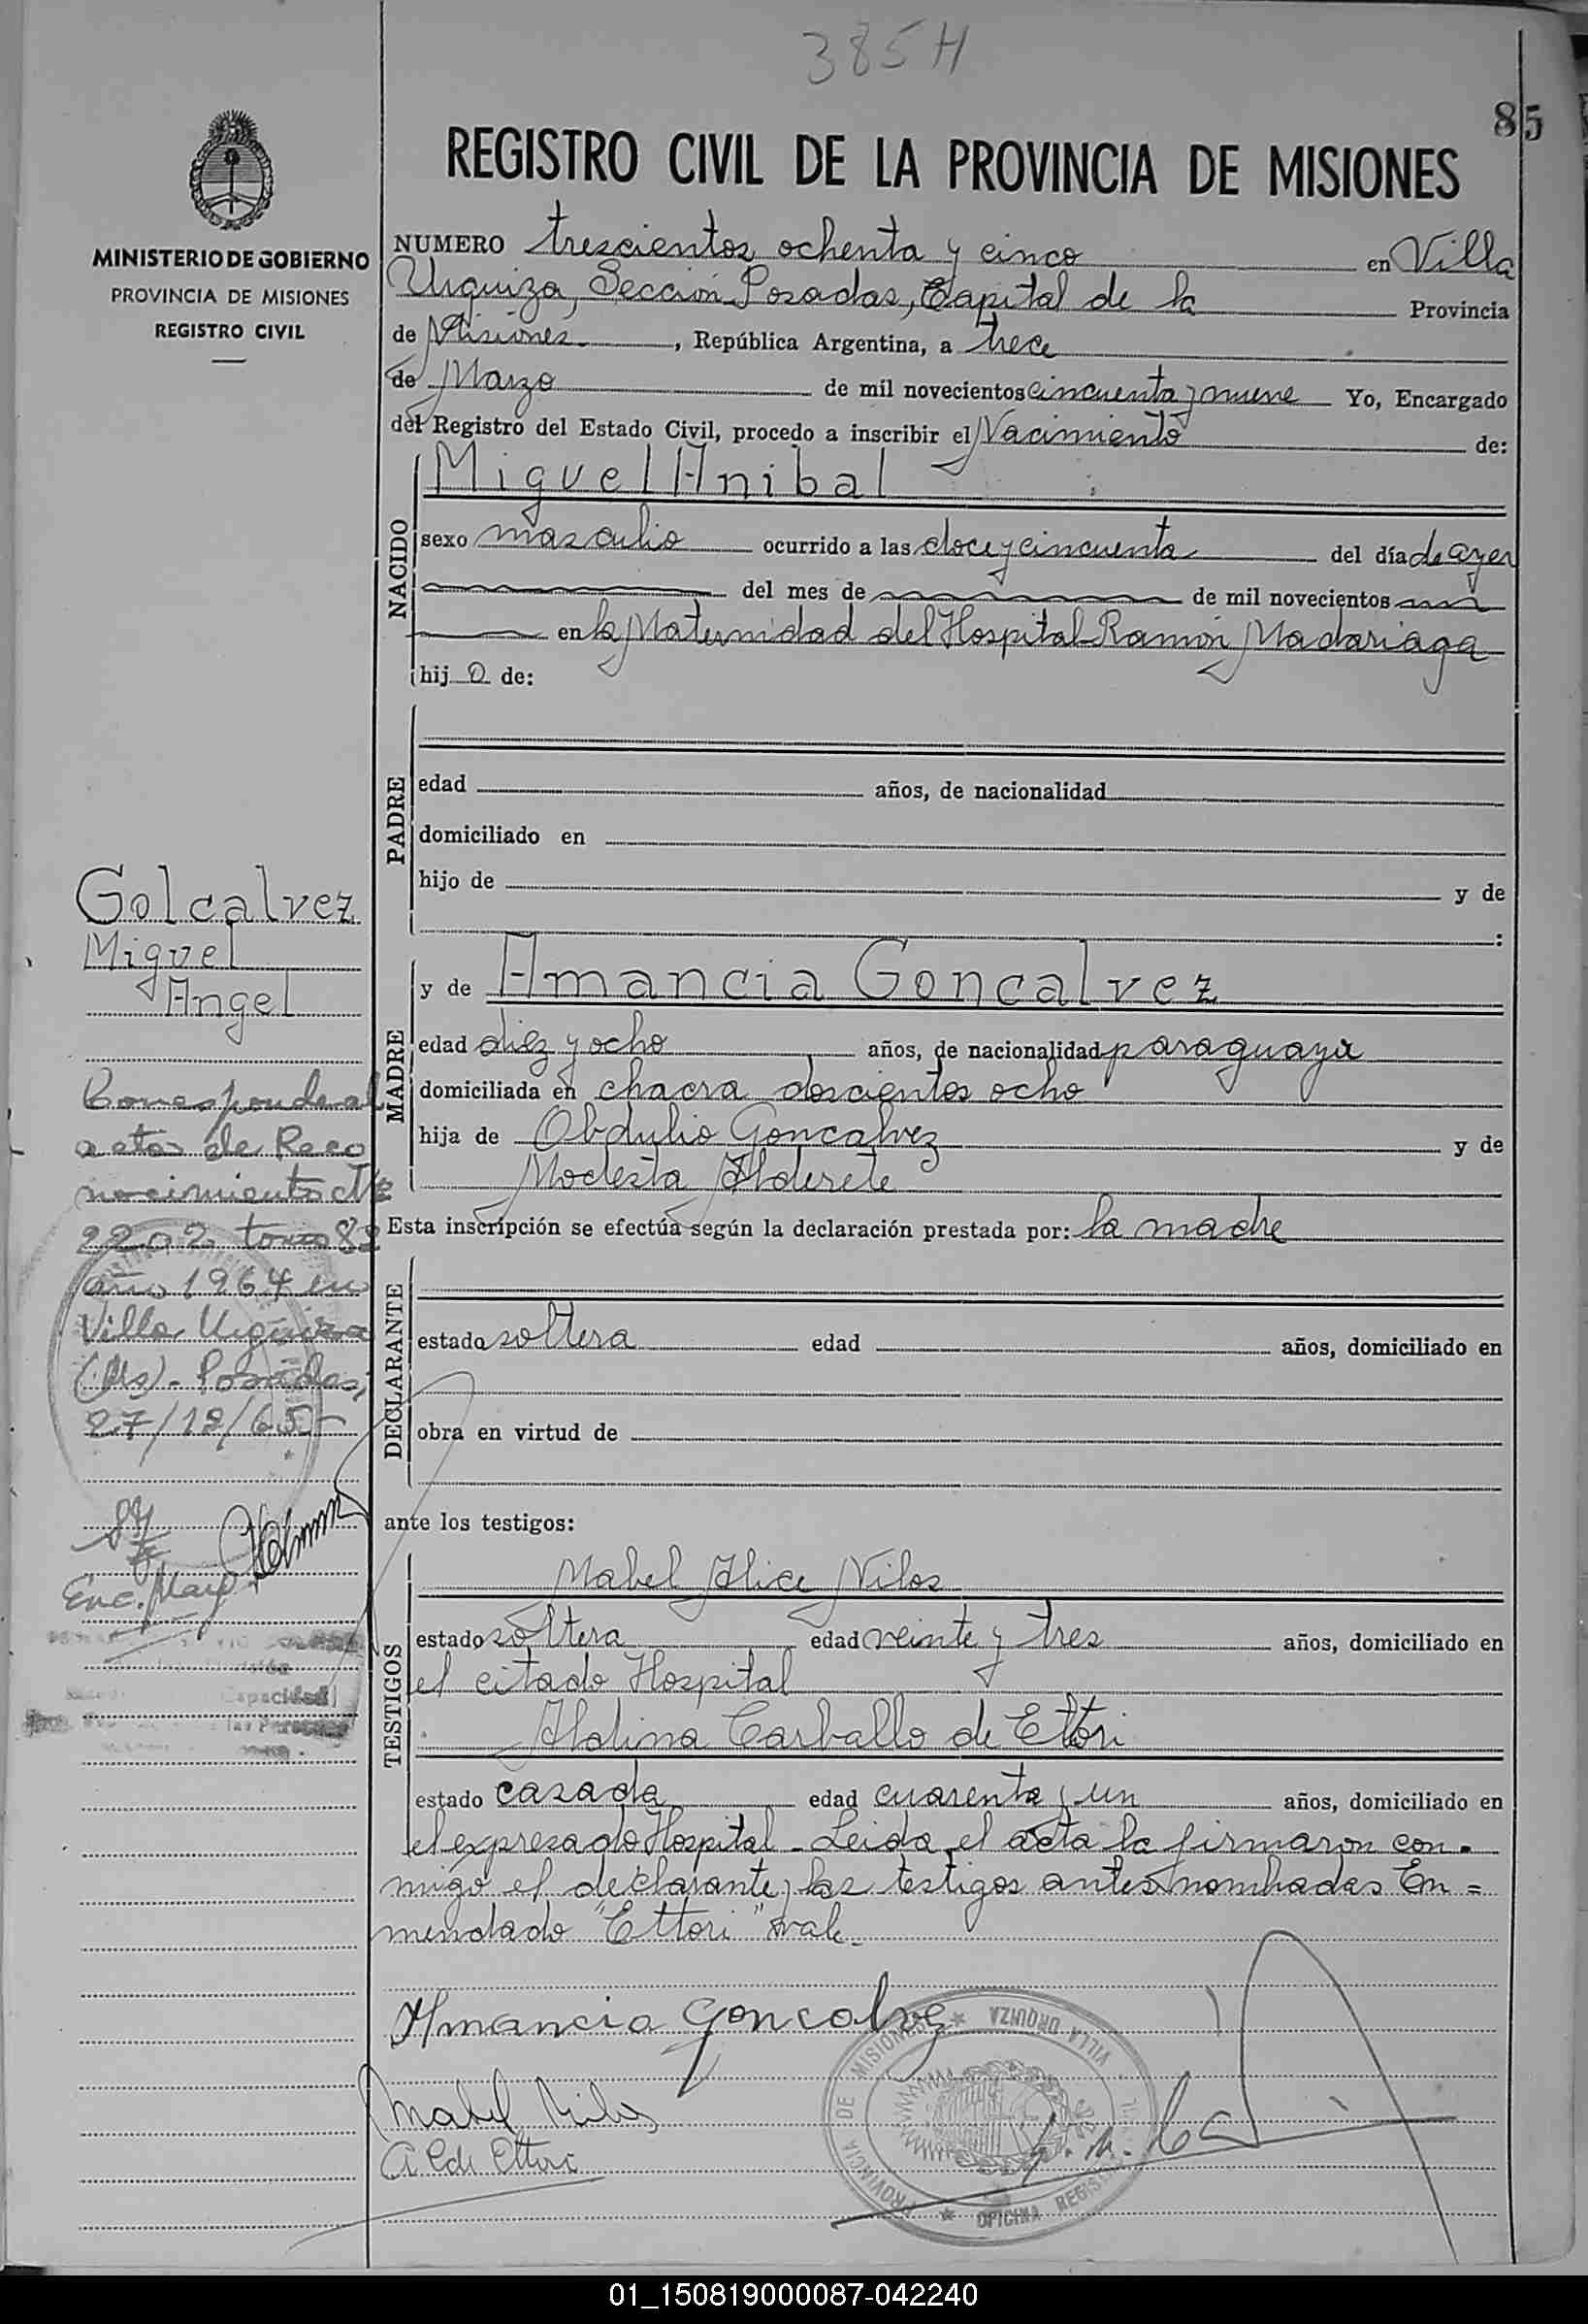 385H
85
REGISTRO CIVIL DE LA PROVINCIA DE MISIONES
MINISTERIO DE GOBIERNO
PROVINCIA DE MISIONES
REGISTRO CIVIL
NUMERO trescientos ochenta y cinco en Villa
Urquiza, Sección Posadas, Capital de la Provincia
de Misiones, República Argentina, a trece
de Marzo de mil novecientos cincuenta y nueve Yo, Encargado
del Registro del Estado Civil, procedo a inscribir el Nacimiento de:
NACIDO
Miguel Anibal
sexo masculio ocurrido a las doce y cincuenta del día de ayer
del mes de de mil novecientos
en la Maternidad del Hospital Ramón Madariaga
hij o de:
PADRE
edad años, de nacionalidad
domiciliado en
hijo de y de
:
MADRE
y de Amancia Goncalvez
edad diez y ocho años, de nacionalidad paraguaya
domiciliada en chacra doscientos ocho
hija de Obdulio Goncalvez y de
Modesta Alderete
Esta inscripción se efectúa según la declaración prestada por: la madre
DECLARANTE
estado soltera edad años, domiciliado en
obra en virtud de
ante los testigos:
TESTIGOS
Mabel Alice Nilos
estado soltera edad veinte y tres años, domiciliado en
el citado Hospital
Aldina Carballo de Ettori
estado casada edad cuarenta y un años, domiciliado en
el expresado Hospital - Leida el acta la firmaron con-
migo el declarante y las testigos antes nombradas En=
mendado "Ettori" vale.
Amancia Goncalvez
Mabel Nilos
A C de Ettori
PROVINCIA DE MISIONES * VILLA URQUIZA
* OFICINA REGISTRO
Golcalvez
Miguel
Angel
Corresponde al
acta de Reco
nocimiento Nº
2202 tomo 82
año 1964 en
Villa Urquiza
(Ms) - Posadas,
27/12/65-
Enc. Marg.
Capacidad
las Personas
01_150819000087-042240